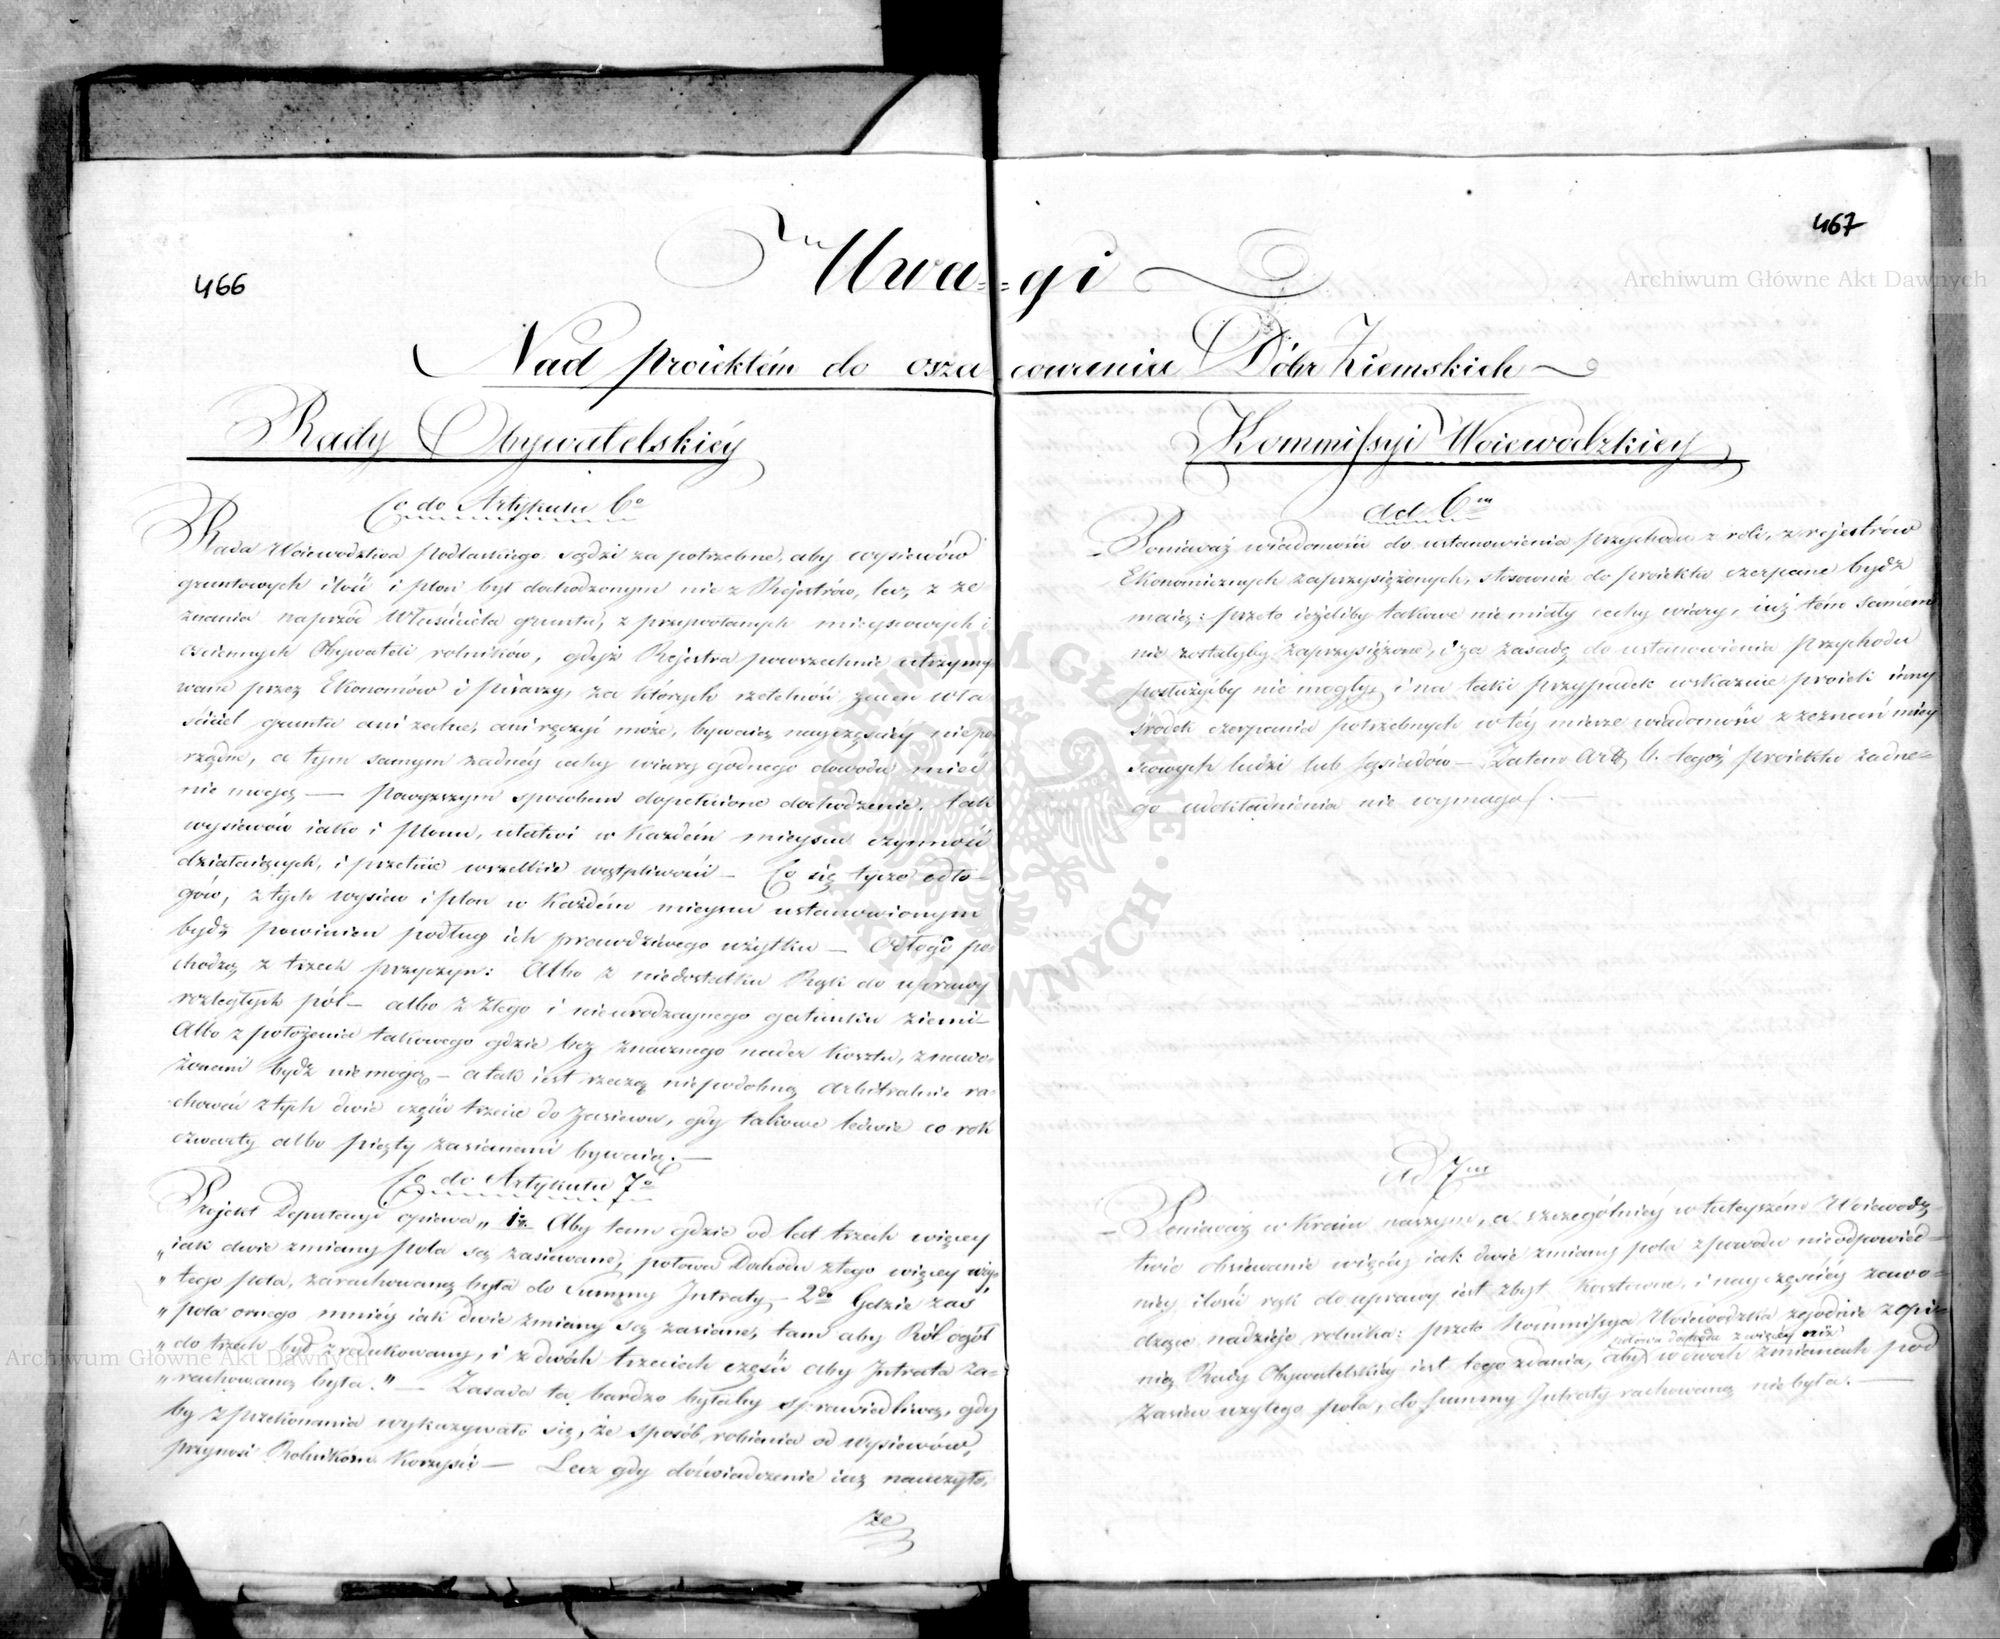 466
467
Uwa=gi
Nad proiektém do osza cowania Dóbr Ziemskich
Rady Obywatelskiéy
Co do Artykułu 6º
Rada Woiewodztwa Podlaskiego sądzi za potrzebne, aby wysiewów
gruntowych ilość i plon był dochodzonym nie z Rejestrów, lecz z ze
znania naprzód Właściciela gruntu, z przywołanych mieyscowych i
ościennych Obywateli rolników, gdyż Rejestra powszechnie utrzymy
wane przez Ekonomów i pisarzy, za których rzetelność żaden wła
ściciel gruntu ani zechce, ani ręczyć może, bywaią nayczęściéy niepo
rządne, a tym samym żadnéy cechy wiary godnego dowodu mieć
nie mogą — Powyższym sposobem dopełnione dochodzenie, tak
wysiewów iako i plonu, ułatwi w każdém mieyscu czynność
działaiących, i przetnie wszelkie wątpliwości — Co się tycze odło-
gów, z tych wysiew i plon w każdém mieyscu ustanowionym
bydź powinien podług ich prawdziwego użytku — Odłogi po
chodzą z trzech przyczyn: Albo z niedostatku Rąk do uprawy
rozległych pól — albo z złego i nieurodzaynego gatunku ziemi —
Albo z położenia takowego gdzie bez znacznego nader kosztu, znawo-
żonemi bydź nie mogą — a tak iest rzeczą niepodobną arbitralnie ra-
chować z tych dwie części trzecie do Zasiewu, gdy takowe ledwie co rok
czwarty albo piąty zasianemi bywaią. —
Co do Artykułu 7º
Projekt Deputacyi opiewa „ 1º Aby tam gdzie od lat trzech więcey
„ iak dwie zmiany pola są zasiewane, połowa Dochodu z tego więcey uży-
„ tego pola, zarachowaną była do Summy Intraty — 2do Gdzie zaś
„ pola ornego mniéy iak dwie zmiany są zasiane, tam aby Ról ogół
„ do trzech był zredukowany, i z dwóch trzecich części aby Intrata za-
„ rachowaną była." — Zasada ta bardzo byłaby sprawiedliwą, gdy
by z przekonania wykazywało się, że sposób robienia od wysiewów,
przynosi Rolnikóm korzyść — Lecz gdy doświadczenie iuż nauczyło,
że
Kommissyi Woiewodzkiey
ad 6m
Ponieważ wiadomości do ustanowienia przychodu z roli, z rejestrów
Ekonomicznych zaprzysiężonych, stosownie do proiektu czerpane bydź
maią: przeto ieżeliby takowe nie miały cechy wiary, iuż tém samém
nie zostałyby zaprzysiężone, i za zasadę do ustanowienia Przychodu
posłużyćby nie mogły, i na taki przypadek wskazuie proiekt inny
środek czerpania potrzebnych w téy mierze wiadomości z zeznań miey
scowych ludzi lub sąsiadów — Zatem Art. 6. tegoż proiektu żadne-
go udokładnienia nie wymaga. —
ad 7m
Ponieważ w Kraiu naszym, a szczególniéy w tuteyszém Woiewodz-
twie obsiewanie więcéy iak dwie zmiany pola z powodu nieodpowied-
niéy ilości rąk do uprawy iest zbyt kosztowne, i nayczęściéy zawo-
dzące nadzieje rolnika: przeto Kommissya Woiewódzka zgodnie z opi-
nią Rady Obywatelskiéy iest tego zdania, aby połowa dochodu z więcéy niż w dwóch zmianach pod
Zasiew użytego pola, do Summy Intraty rachowaną nie była. —